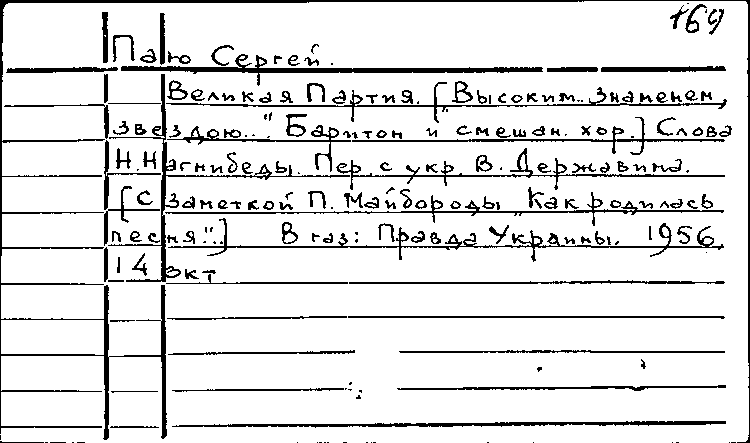 169
Паю Сергей.
Великая Партия. ["Высоким.. знаменем,
звездою.." Баритон и смешан. хор.] Слова
Н. Нагнибеды. Пер. с укр. В. Державина.
[С заметкой П. Майбороды "Как родилась
песня"..] В газ: Правда Украины. 1956,
14 окт